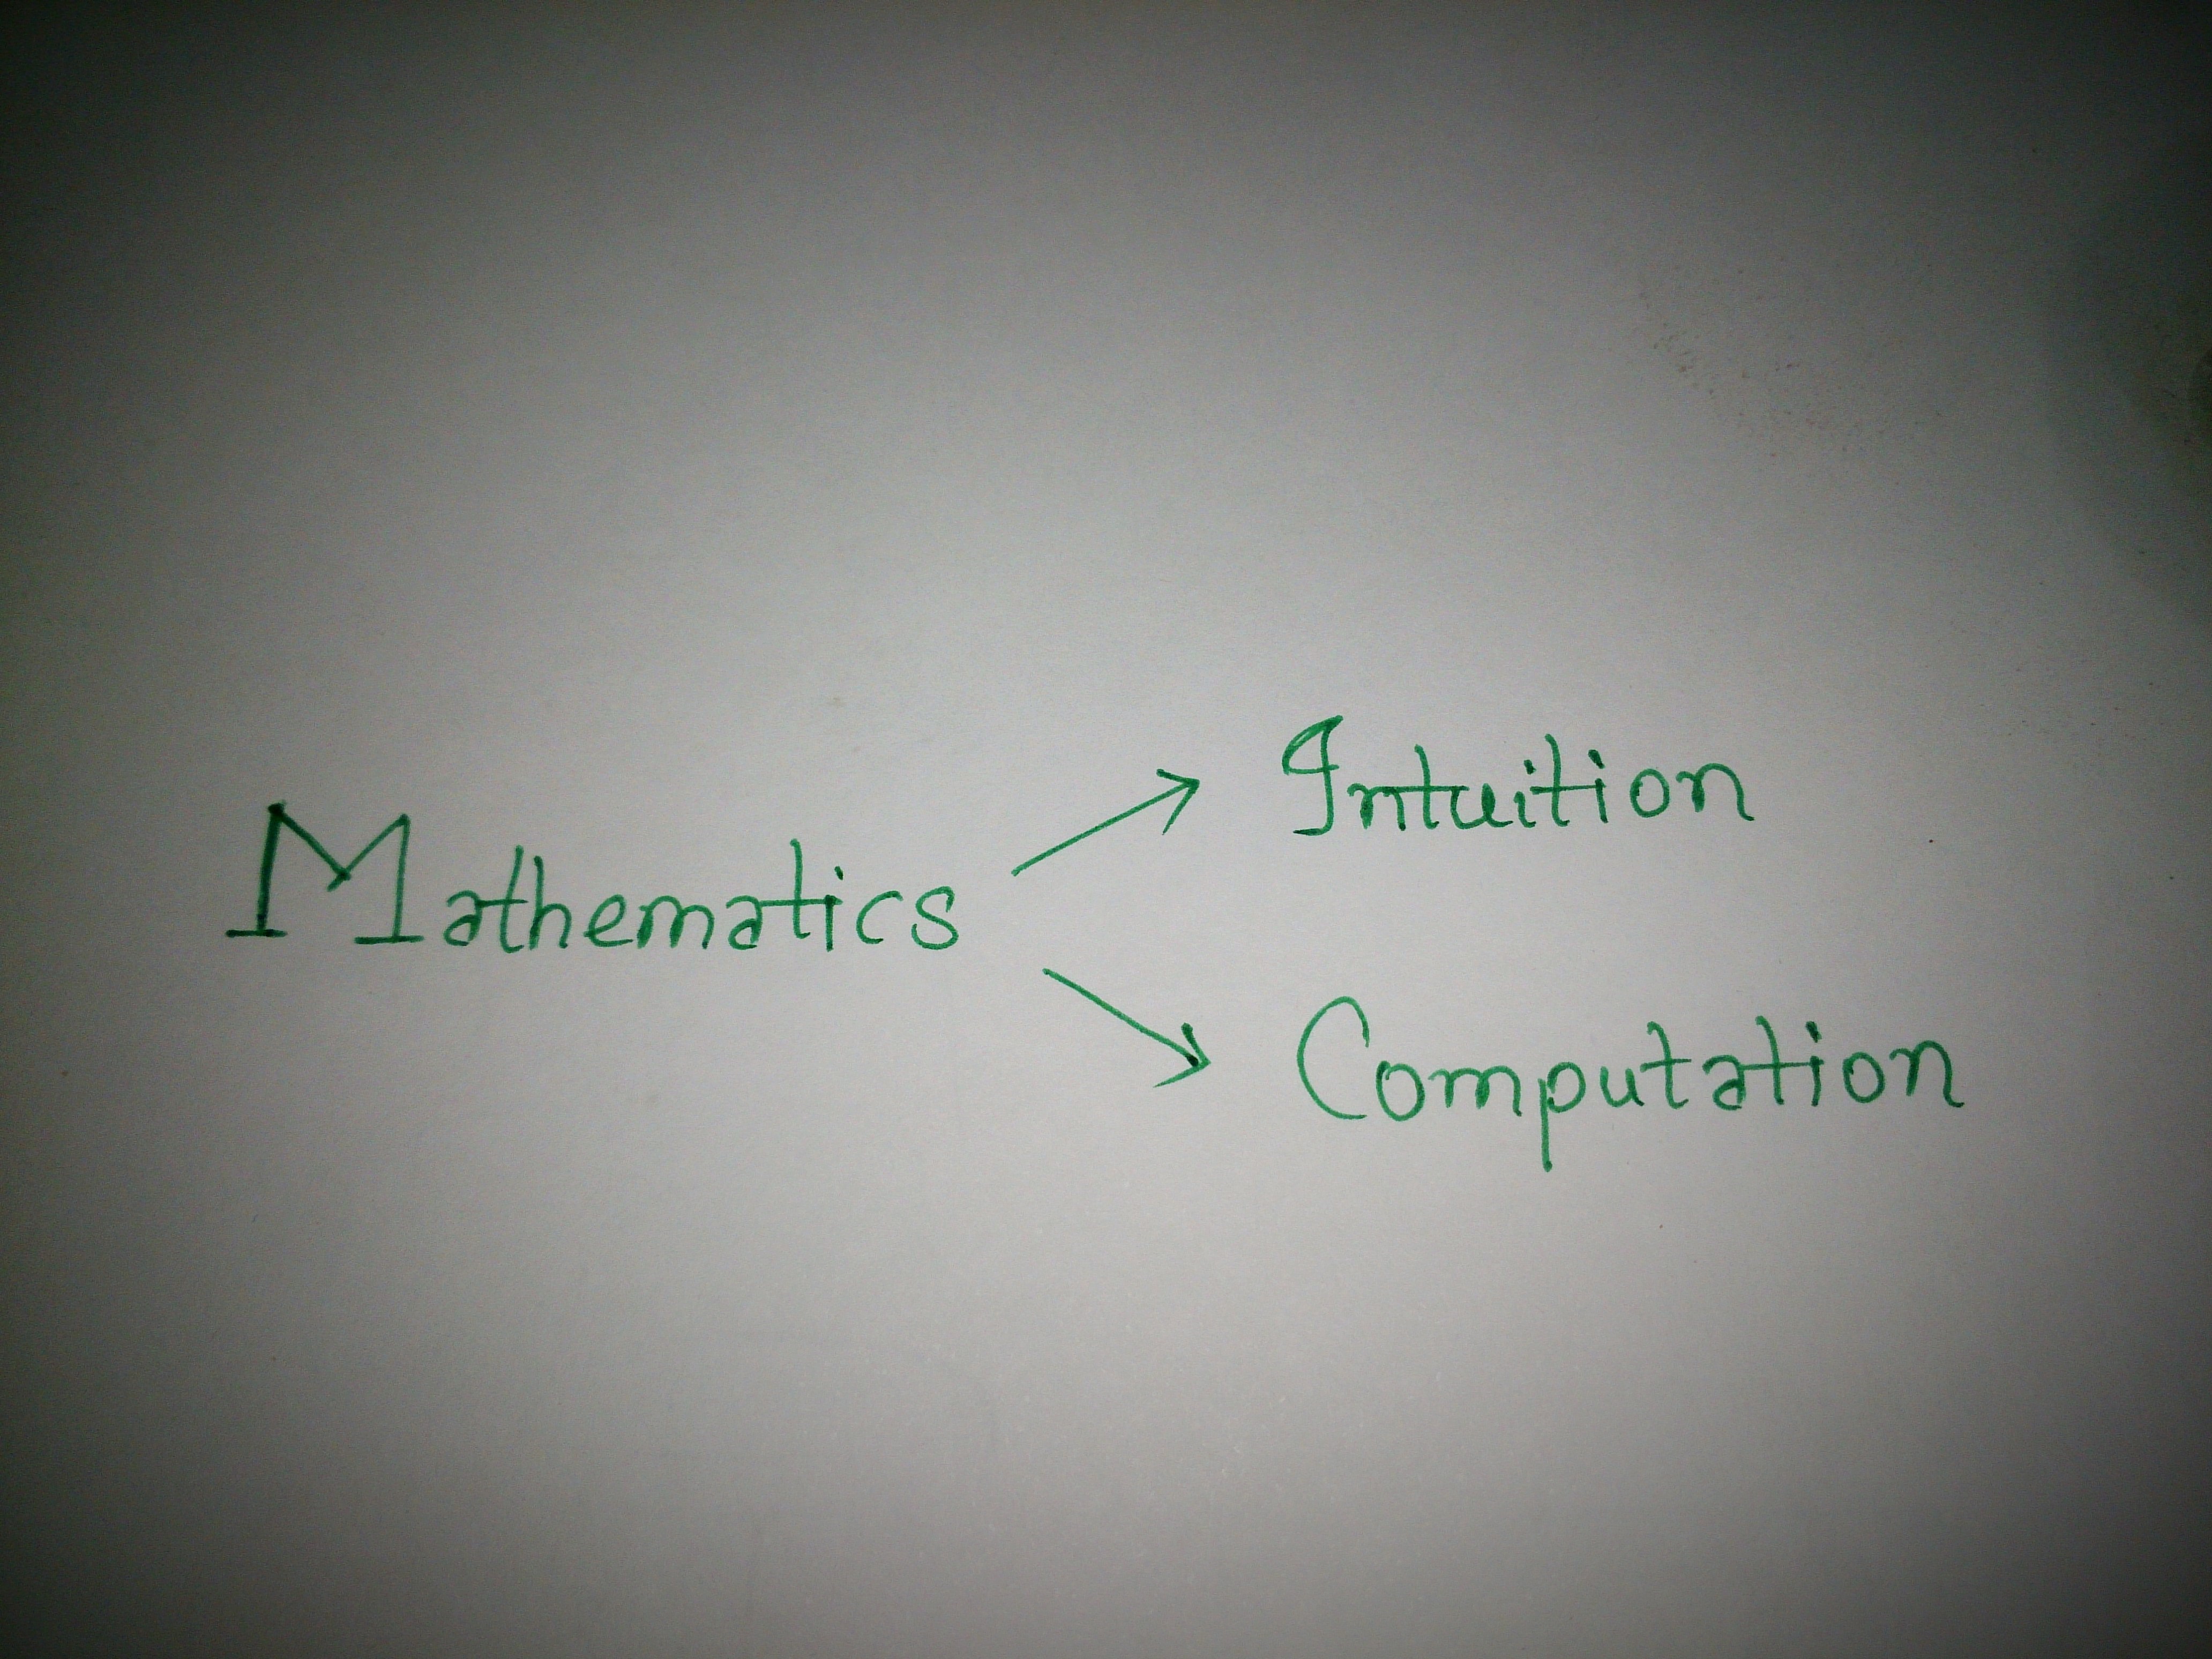 Intuition
Mathematics
Computation